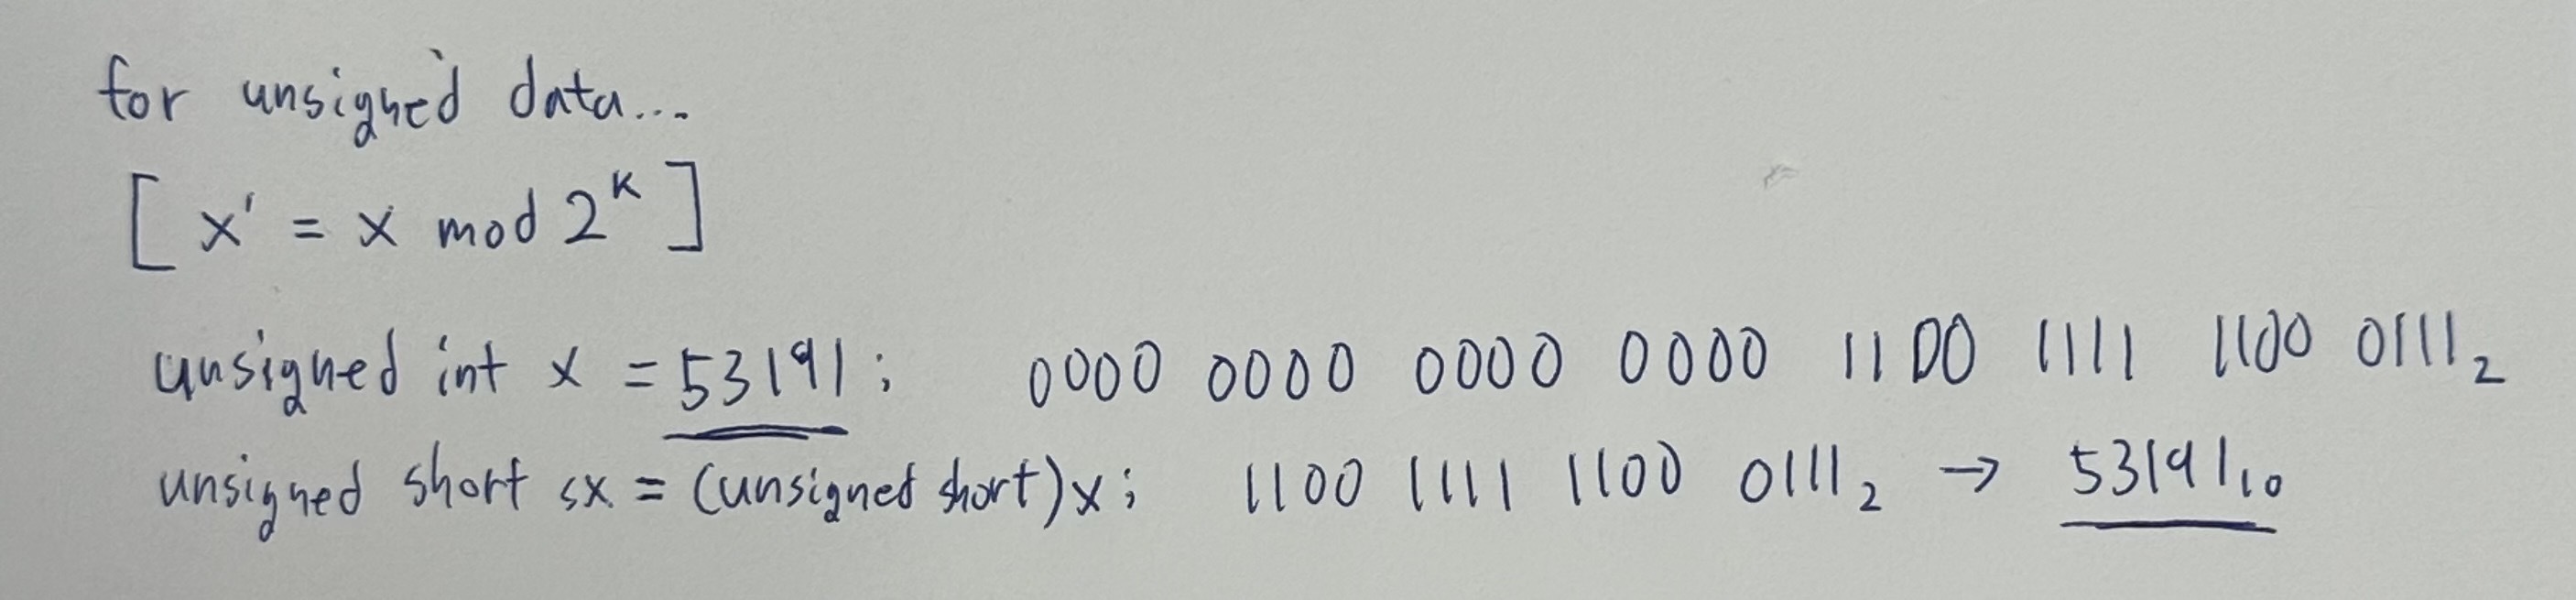 for unsigned data...
[ x' = x mod 2^K ]
unsigned int x = 53191; 0000 0000 0000 0000 1100 1111 1100 0111₂
unsigned short sx = (unsigned short)x; 1100 1111 1100 0111₂ → 53191₁₀